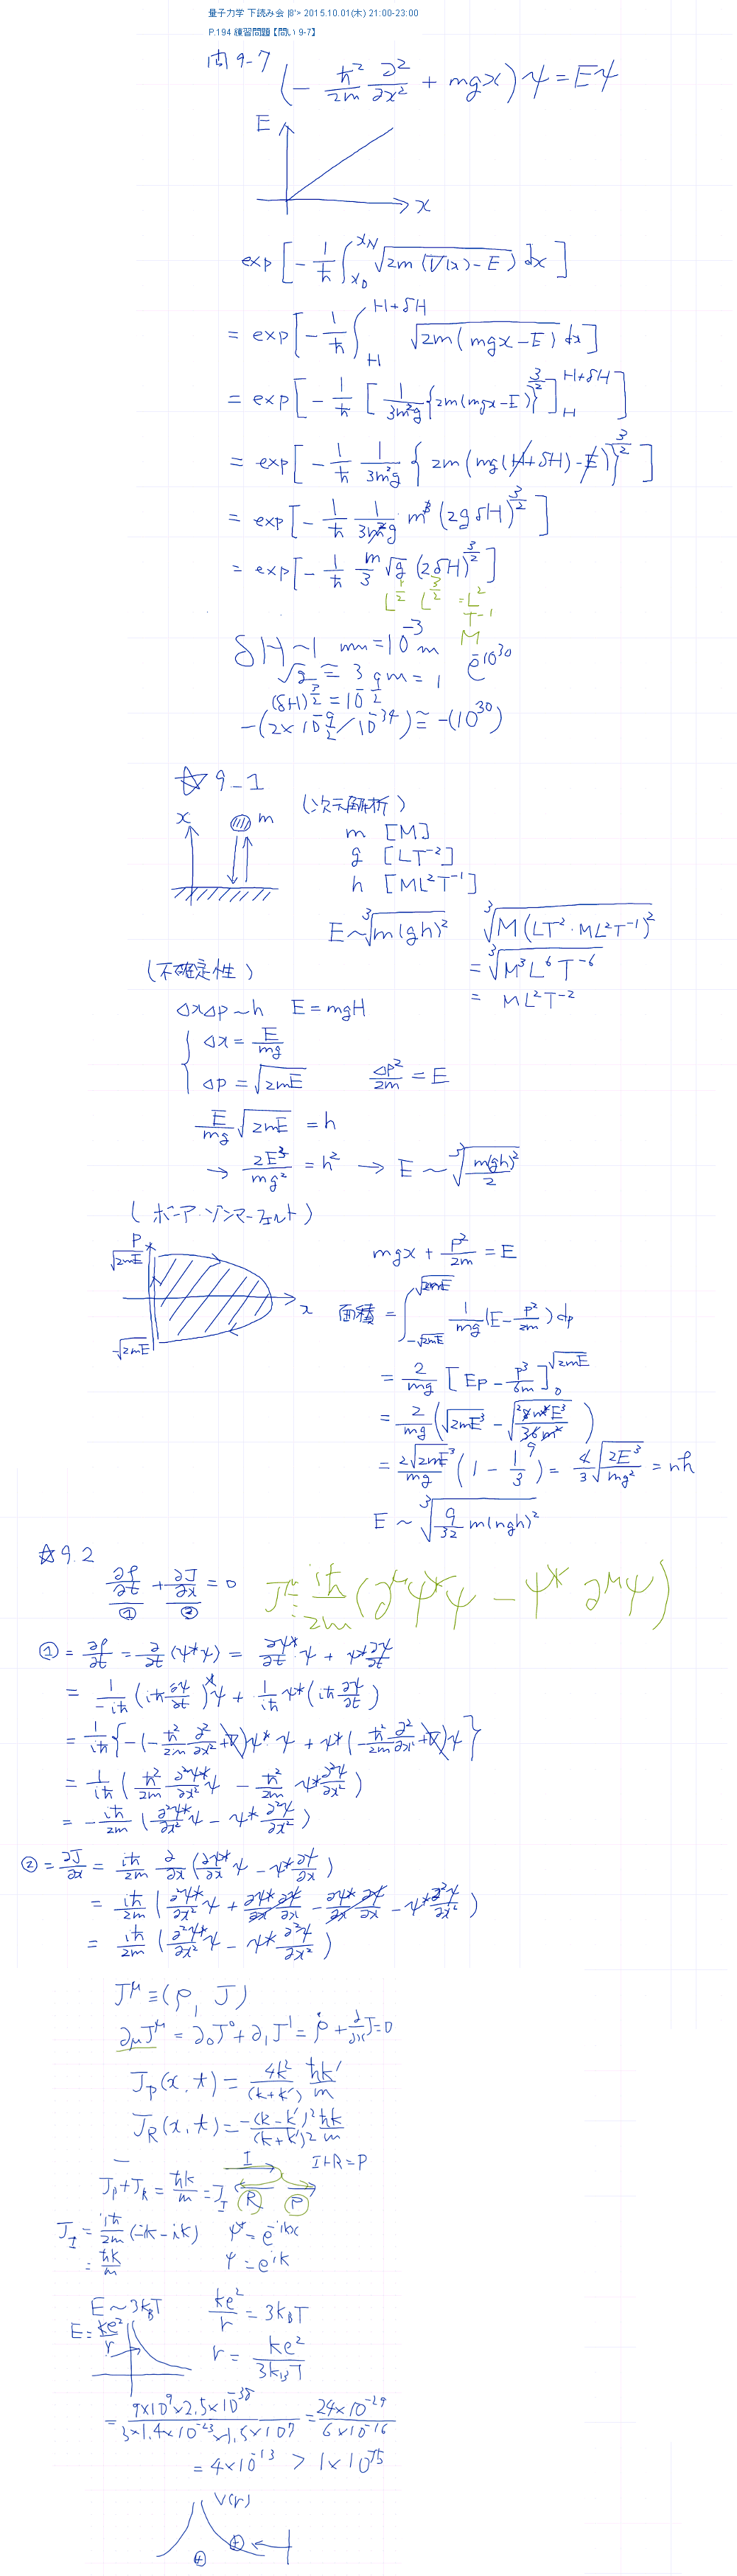 量子力学 下読み会 |8'> 2015.10.01(木) 21:00-23:00
P.194 練習問題【問い 9-7】
問 9-7 (- ℏ²/2m ∂²/∂x² + mgx) ψ = Eψ
E
x
exp [ - 1/ℏ ∫_{x_0}^{x_N} √(2m (V(x) - E)) dx ]
= exp [ - 1/ℏ ∫_H^{H+δH} √(2m (mgx - E)) dx ]
= exp [ - 1/ℏ [ 1/3m²g {2m(mgx-E)}^{3/2} ]_H^{H+δH} ]
= exp [ - 1/ℏ 1/3m²g { 2m (mg(H+δH) - E) }^{3/2} ]
= exp [ - 1/ℏ 1/3m²g m³ (2gδH)^{3/2} ]
= exp [ - 1/ℏ m/3 √g (2δH)^{3/2} ]
L^{1/2} L^{3/2} = L²
T⁻¹
M
δH ~ 1 mm = 10⁻³ m
e^{-10^{30}}
√g ≅ 3 m = 1
(δH)^{3/2} = 10^{-9/2}
-(2×10^{-9/2}/10⁻³⁴) ≅ -(10³⁰)
☆ 9-1
x
m
(次元解析)
m [M]
g [LT⁻²]
h [ML²T⁻¹]
E ~ ³√(m(gh)²) ³√(M(LT⁻²・ML²T⁻¹)²)
= ³√(M³L⁶T⁻⁶)
= ML²T⁻²
(不確定性)
ΔxΔp ~ h E = mgH
Δx = E/mg
Δp = √(2mE) Δp²/2m = E
E/mg √(2mE) = h
→ 2E³/mg² = h² → E ~ ³√(m(gh)²/2)
(ボーア・ゾンマーフェルト)
P
√2mE
x
-√2mE
mgx + p²/2m = E
面積 = ∫_{-√2mE}^{√2mE} 1/mg (E - p²/2m) dp
= 2/mg [ Ep - p³/6m ]_0^{√2mE}
= 2/mg (√2mE³ - √(8m³E³/36m²))
= 2√2mE³/mg (1 - 1/3) = 4/3 √(2E³/mg²) = nh
E ~ ³√(9/32 m(ngh)²)
☆ 9.2
∂ρ/∂t + ∂J/∂x = 0 J^μ ≡ iℏ/2m (∂^μψ*ψ - ψ*∂^μψ)
① ②
① = ∂ρ/∂t = ∂/∂t (ψ*ψ) = ∂ψ*/∂t ψ + ψ* ∂ψ/∂t
= 1/-iℏ (iℏ ∂ψ/∂t)* ψ + 1/iℏ ψ* (iℏ ∂ψ/∂t)
= 1/iℏ { -(-ℏ²/2m ∂²/∂x² + V)ψ* ψ + ψ* (-ℏ²/2m ∂²/∂x² + V)ψ }
= 1/iℏ (ℏ²/2m ∂²ψ*/∂x² ψ - ℏ²/2m ψ* ∂²ψ/∂x²)
= - iℏ/2m (∂²ψ*/∂x² ψ - ψ* ∂²ψ/∂x²)
② = ∂J/∂x = iℏ/2m ∂/∂x (∂ψ*/∂x ψ - ψ* ∂ψ/∂x)
= iℏ/2m (∂²ψ*/∂x² ψ + ∂ψ*/∂x ∂ψ/∂x - ∂ψ*/∂x ∂ψ/∂x - ψ* ∂²ψ/∂x²)
= iℏ/2m (∂²ψ*/∂x² ψ - ψ* ∂²ψ/∂x²)
J^μ ≡ (ρ, J)
∂_μJ^μ = ∂₀J⁰ + ∂₁J¹ = ρ̇ + ∂/∂x J = 0
J_P(x,t) = 4k²/(k+k') ℏk'/m
J_R(x,t) = -(k-k')²/(k+k')² ℏk/m
I
I+R=P
J_P + J_R = ℏk/m = J_I
R
P
J_I = iℏ/2m (-ik - ik) ψ* = e^{-ikx}
= ℏk/m ψ = e^{ik}
E ~ 3k_BT ke²/r = 3k_BT
E = ke²/r
r = ke²/3k_BT
= 9×10⁹×2.5×10⁻³⁸/3×1.4×10⁻²³×1.5×10⁷ = 24×10⁻²⁹/6×10⁻¹⁶
= 4×10⁻¹³ > 1×10⁻¹⁵
V(r)
+
+